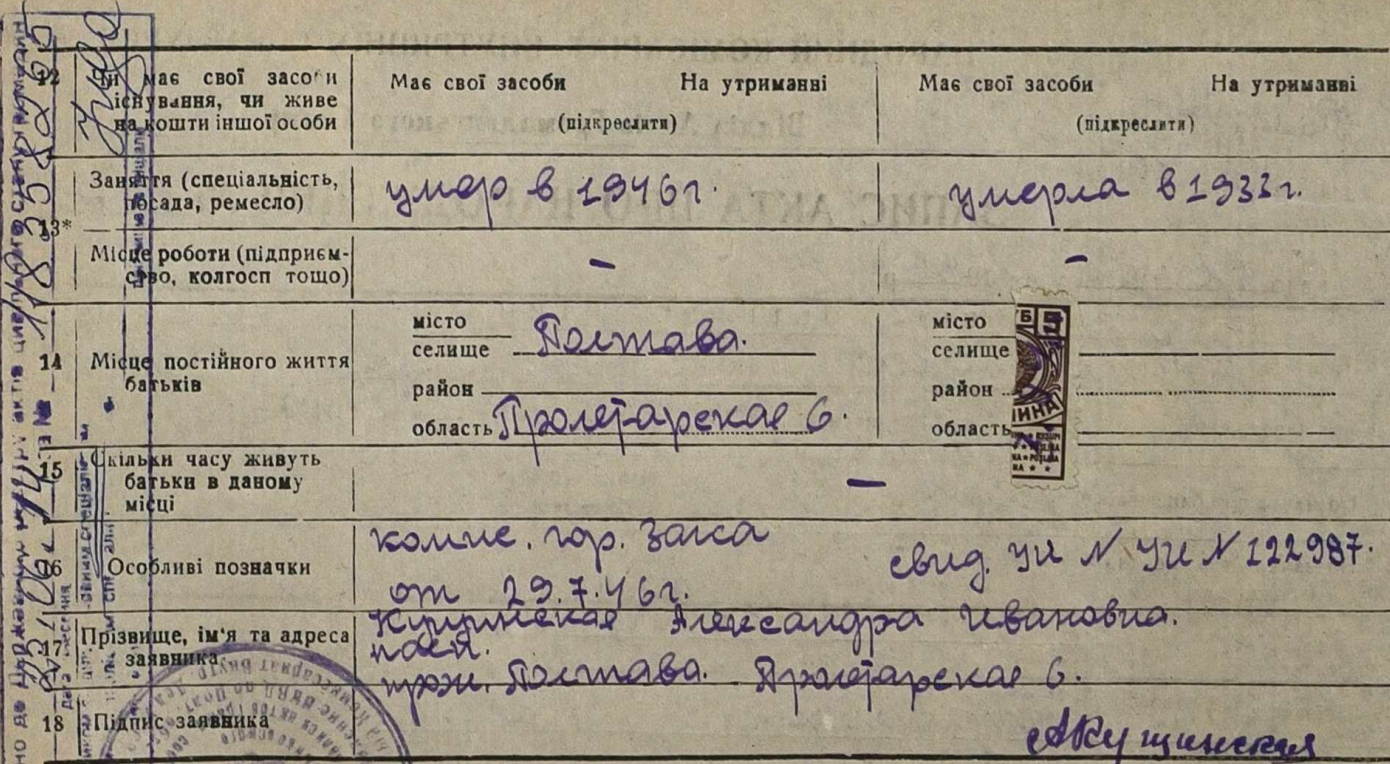 12 Чи має свої засоби
існування, чи живе
на кошти іншої особи
Має свої засоби На утриманні
(підкреслити)
Має свої засоби На утриманні
(підкреслити)
13*
Заняття (спеціальність,
посада, ремесло)
умер в 1946 г.
умерла в 1933 г.
Місце роботи (підприєм-
ство, колгосп тощо)
–
–
14 Місце постійного життя
батьків
місто
селище Полтава.
район
область Пролетарская 6.
місто
селище
район
область
15 Скільки часу живуть
батьки в даному
місці
–
16 Особливі позначки
комис. гор. Загса
от 29.7.46 г.
свид. УИ N УИ N 122987.
17 Прізвище, ім'я та адреса
заявника
Александра Ивановна.
прож. Полтава. Пролетарская 6.
18 Підпис заявника
АКущинская